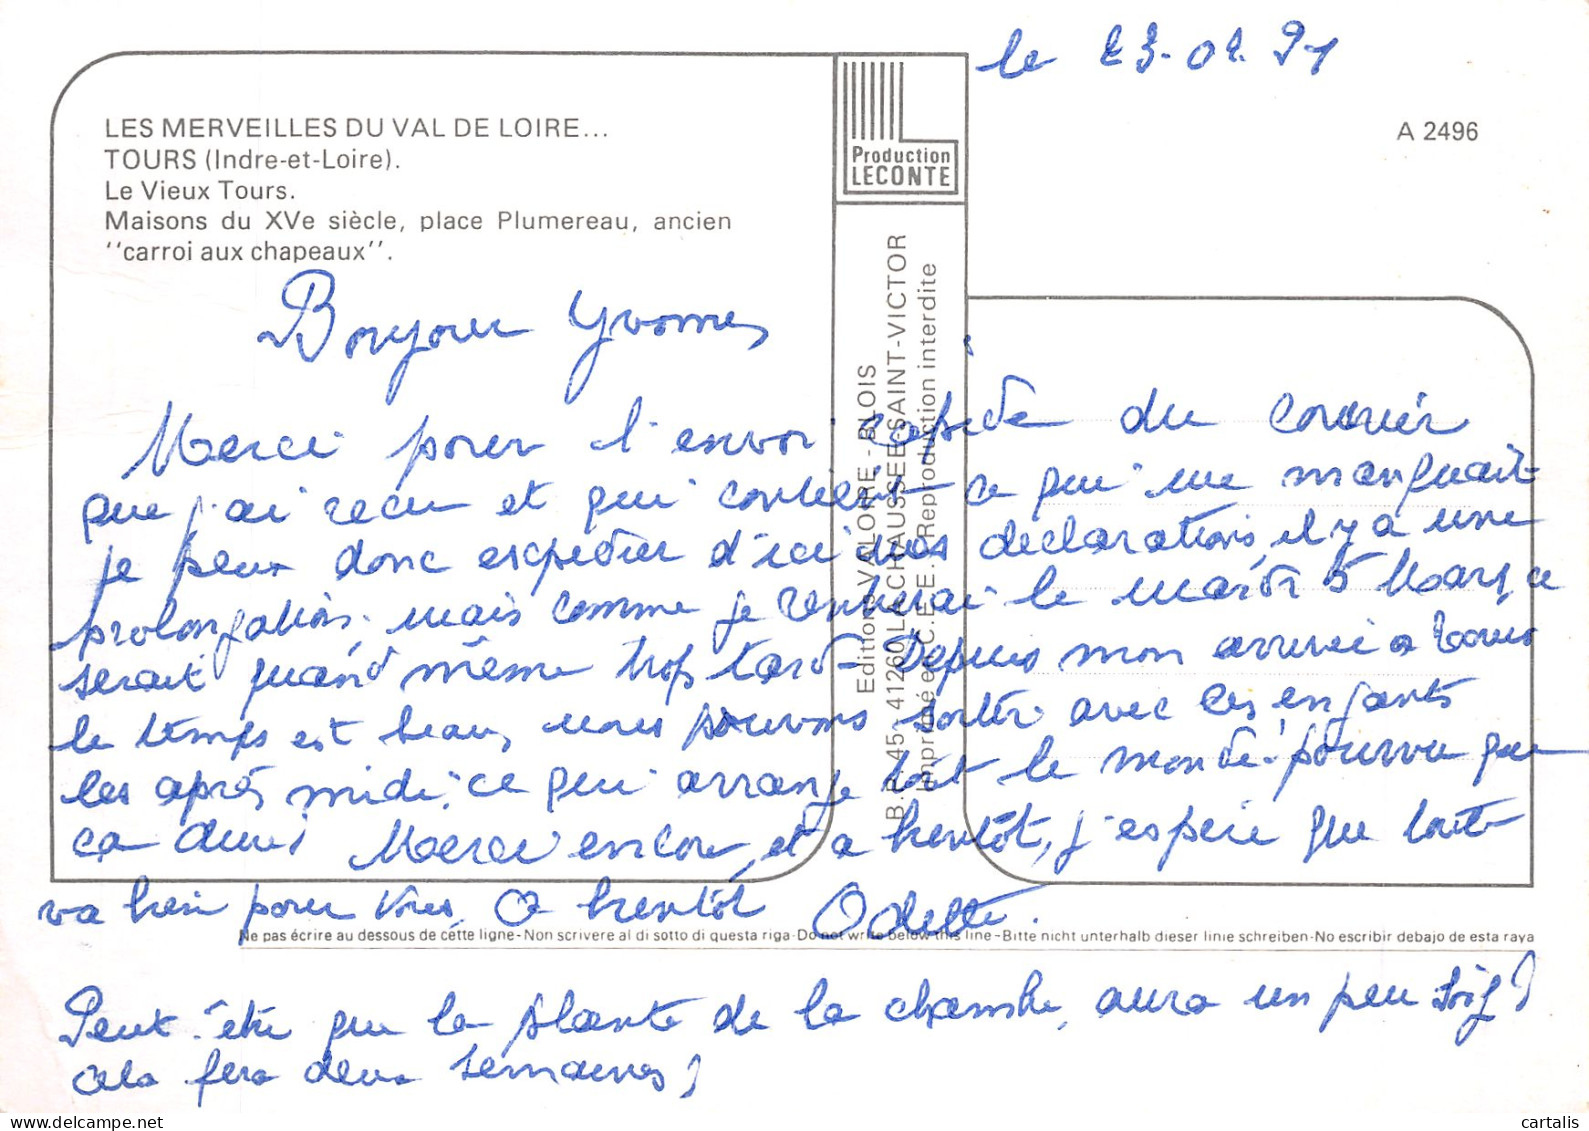 le 23.02.91
LES MERVEILLES DU VAL DE LOIRE...
TOURS (Indre-et-Loire).
Le Vieux Tours.
Maisons du XVe siècle, place Plumereau, ancien
"carroi aux chapeaux".
A 2496
Production
LECONTE
Editions VALOIRE - BLOIS
B.P. 45 - 41260 LA CHAUSSEE-SAINT-VICTOR
Imprimé en C.E.E. Reproduction interdite
Bonjour Yvonne,
Merci pour l'envoi rapide du courrier
que j'ai reçu et qui contient ce qui me manquait
je peux donc expédier d'ici mes déclarations, il y a une
prolongation, mais comme je rentrerai le mardi 5 Mars, ce
serait quand même trop tard - Depuis mon arrivée à Tours
le temps est beau, nous pouvons sortir avec les enfants
les après midi, ce qui arrange tout le monde. pourvu que
ça dure! Merci encore, et à bientôt, j'espère que tout
va bien pour vous, à bientôt Odette.
Ne pas écrire au dessous de cette ligne-Non scrivere al di sotto di questa riga-Do not write below this line-Bitte nicht unterhalb dieser linie schreiben-No escribir debajo de esta raya
Peut-être que la plante de la chambre, aura un peu soif?
cela fera deux semaines?
cartalis